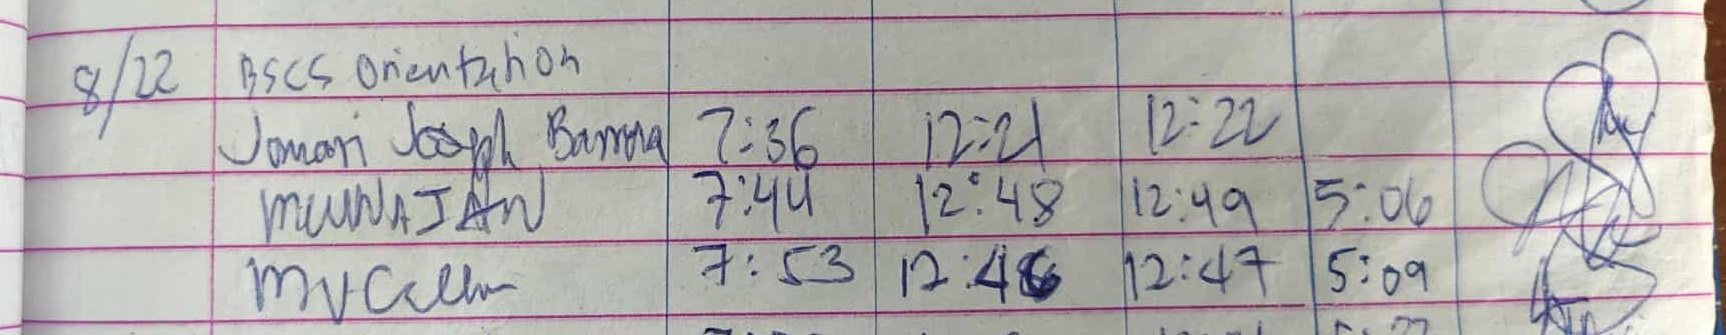 8/22 BSCS Orientation
Jomari Joseph Barrera 7:36 12:21 12:22
MUNAJAN 7:44 12:48 12:49 5:06
7:53 12:46 12:47 5:09